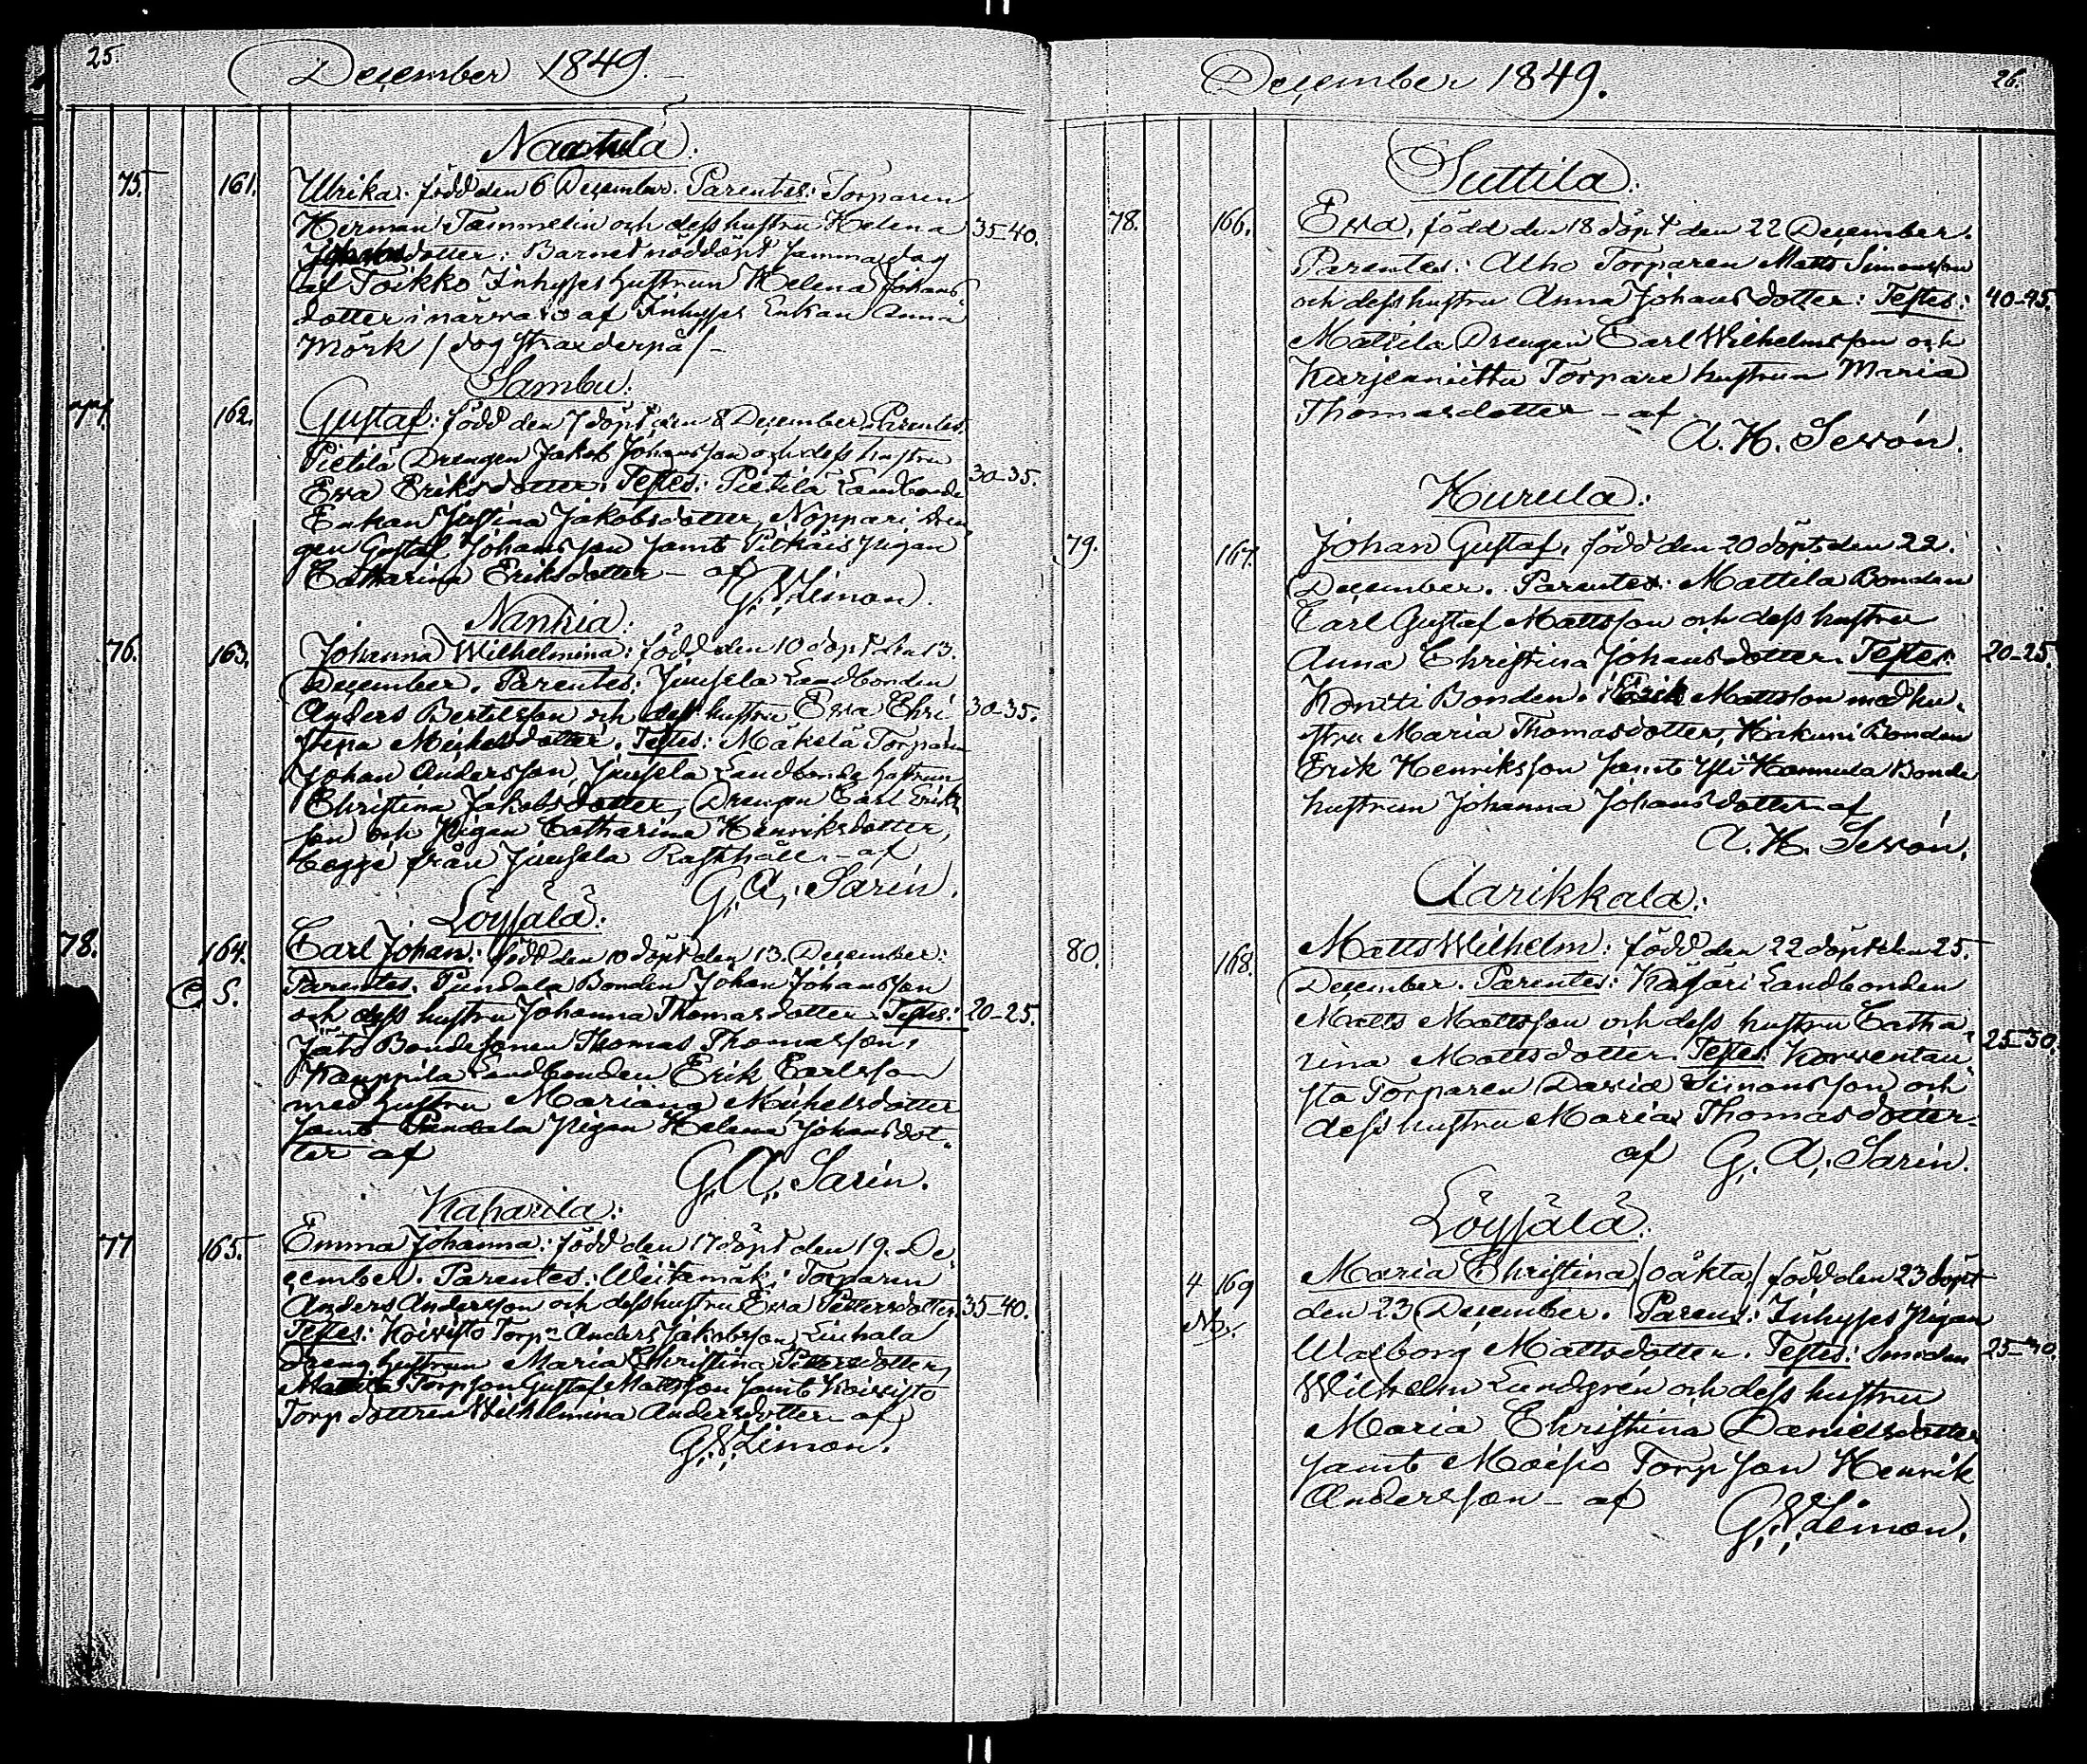 25.
December 1849.
Naatula:
75. 161. Ulrika: född den 6 December. Parentes: Torparen
Herman Tammelin och dess hustru Helena 35-40.
Johansdotter: Barnet nöddöpt samma dag
af Toikko Inhyses hustrun Helena Johans-
dotter i närvaro af Inhyses Enkan Anna
Mörk / dog straxderpå / -
Sambu:
77. 162. Gustaf: född den 7 döpt den 8 December. Parentes.
Pietilä Drengen Jakob Johansson och dess hustru
Ewa Eriksdotter. Testes: Pietilä Landbonde 30-35.
Enkan Justina Jakobsdotter, Noppari Dren-
gen Gustaf Johansson samt Pitkäis pigan
Catharina Eriksdotter - af
G. V. Limon.
Nankia:
76. 163. Johanna Wilhelmina: född den 10 döpt den 13.
December. Parentes: Juusela Landbonden
Anders Bertilsson och dess hustru Ewa Chri- 30-35.
stina Michelsdotter. Testes: Mäkelä Torparen
Johan Andersson, Juusela Landbonde hustrun
Christina Jakobsdotter, Drengen Carl Eriks-
son och Pigan Catharina Henriksdotter,
begge från Juusela Rasthåll. - af
G. A. Sarin.
Löysälä:
78. 164. Carl Johan: född den 10 döpt den 13. December:
C. S. Parentes. Pundala Bonden Johan Johansson
och dess hustru Johanna Thomasdotter. Testes: 20-25.
Jätö Bondesonen Thomas Thomasson,
Kauppila Landbonden Erik Carlsson
med hustru Mariana Michelsdotter
samt Pundala Pigan Helena Johansdot-
ter af
G. A. Sarin.
Kaharila:
77 165. Emma Johanna: född den 17 döpt den 19. De-
cember. Parentes: Weitamäki Torparen
Anders Andersson och dess hustru Ewa Pettersdotter. 35-40.
Testes: Koivisto Torpn Anders Jakobsson, Liuhala
Dreng hustrun Maria Christina Pettersdotter,
Mattila Torpson Gustaf Mattsson samt Koivisto
Torp dottren Wilhelmina Andersdotter - af
G. V. Limon.
December 1849.
26.
Suttila:
78. 166. Ewa, född den 18 döpt den 22 December.
Parentes: Alho Torparen Matts Simonsson
och dess hustru Anna Johansdotter: Testes: 40-45.
Mattila Drengen Carl Wilhelmsson och
Kurjenniittu Torpare hustrun Maria
Thomasdotter - af
A. H. Sevón.
Kurula:
79. 167. Johan Gustaf, född den 20 döpt den 22.
December. Parentes: Mattila Bonden
Carl Gustaf Mattsson och dess hustru
Anna Christina Johansdotter. Testes: 20-25.
Kontti Bonden Erik Mattsson med hu-
stru Maria Thomasdotter, Hakuni Bonden
Erik Henriksson samt Yli Hannula Bonde
hustrun Johanna Johansdotter af
A. H. Sevón.
Aarikkala:
80. 168. Matts Wilhelm: född den 22 döpt den 25.
December. Parentes: Käsäri Landbonden
Matts Mattsson och dess hustru Catha-
rina Mattsdotter. Testes: Korventau- 25-30.
sta Torparen David Simonsson och
dess hustru Maria Thomasdotter-
af G. A. Sarin.
Löysälä:
4 169 Maria Christina, /oäkta/ född den 23 döpt
No. den 23 December. Parens: Inhyses Pigan
Walborg Mattsdotter. Testes: Smeden 25-30.
Wilhelm Lundgrén och dess hustru
Maria Christina Danielsdotter
samt Moisio Torpson Henrik
Andersson - af
G. V. Limon.